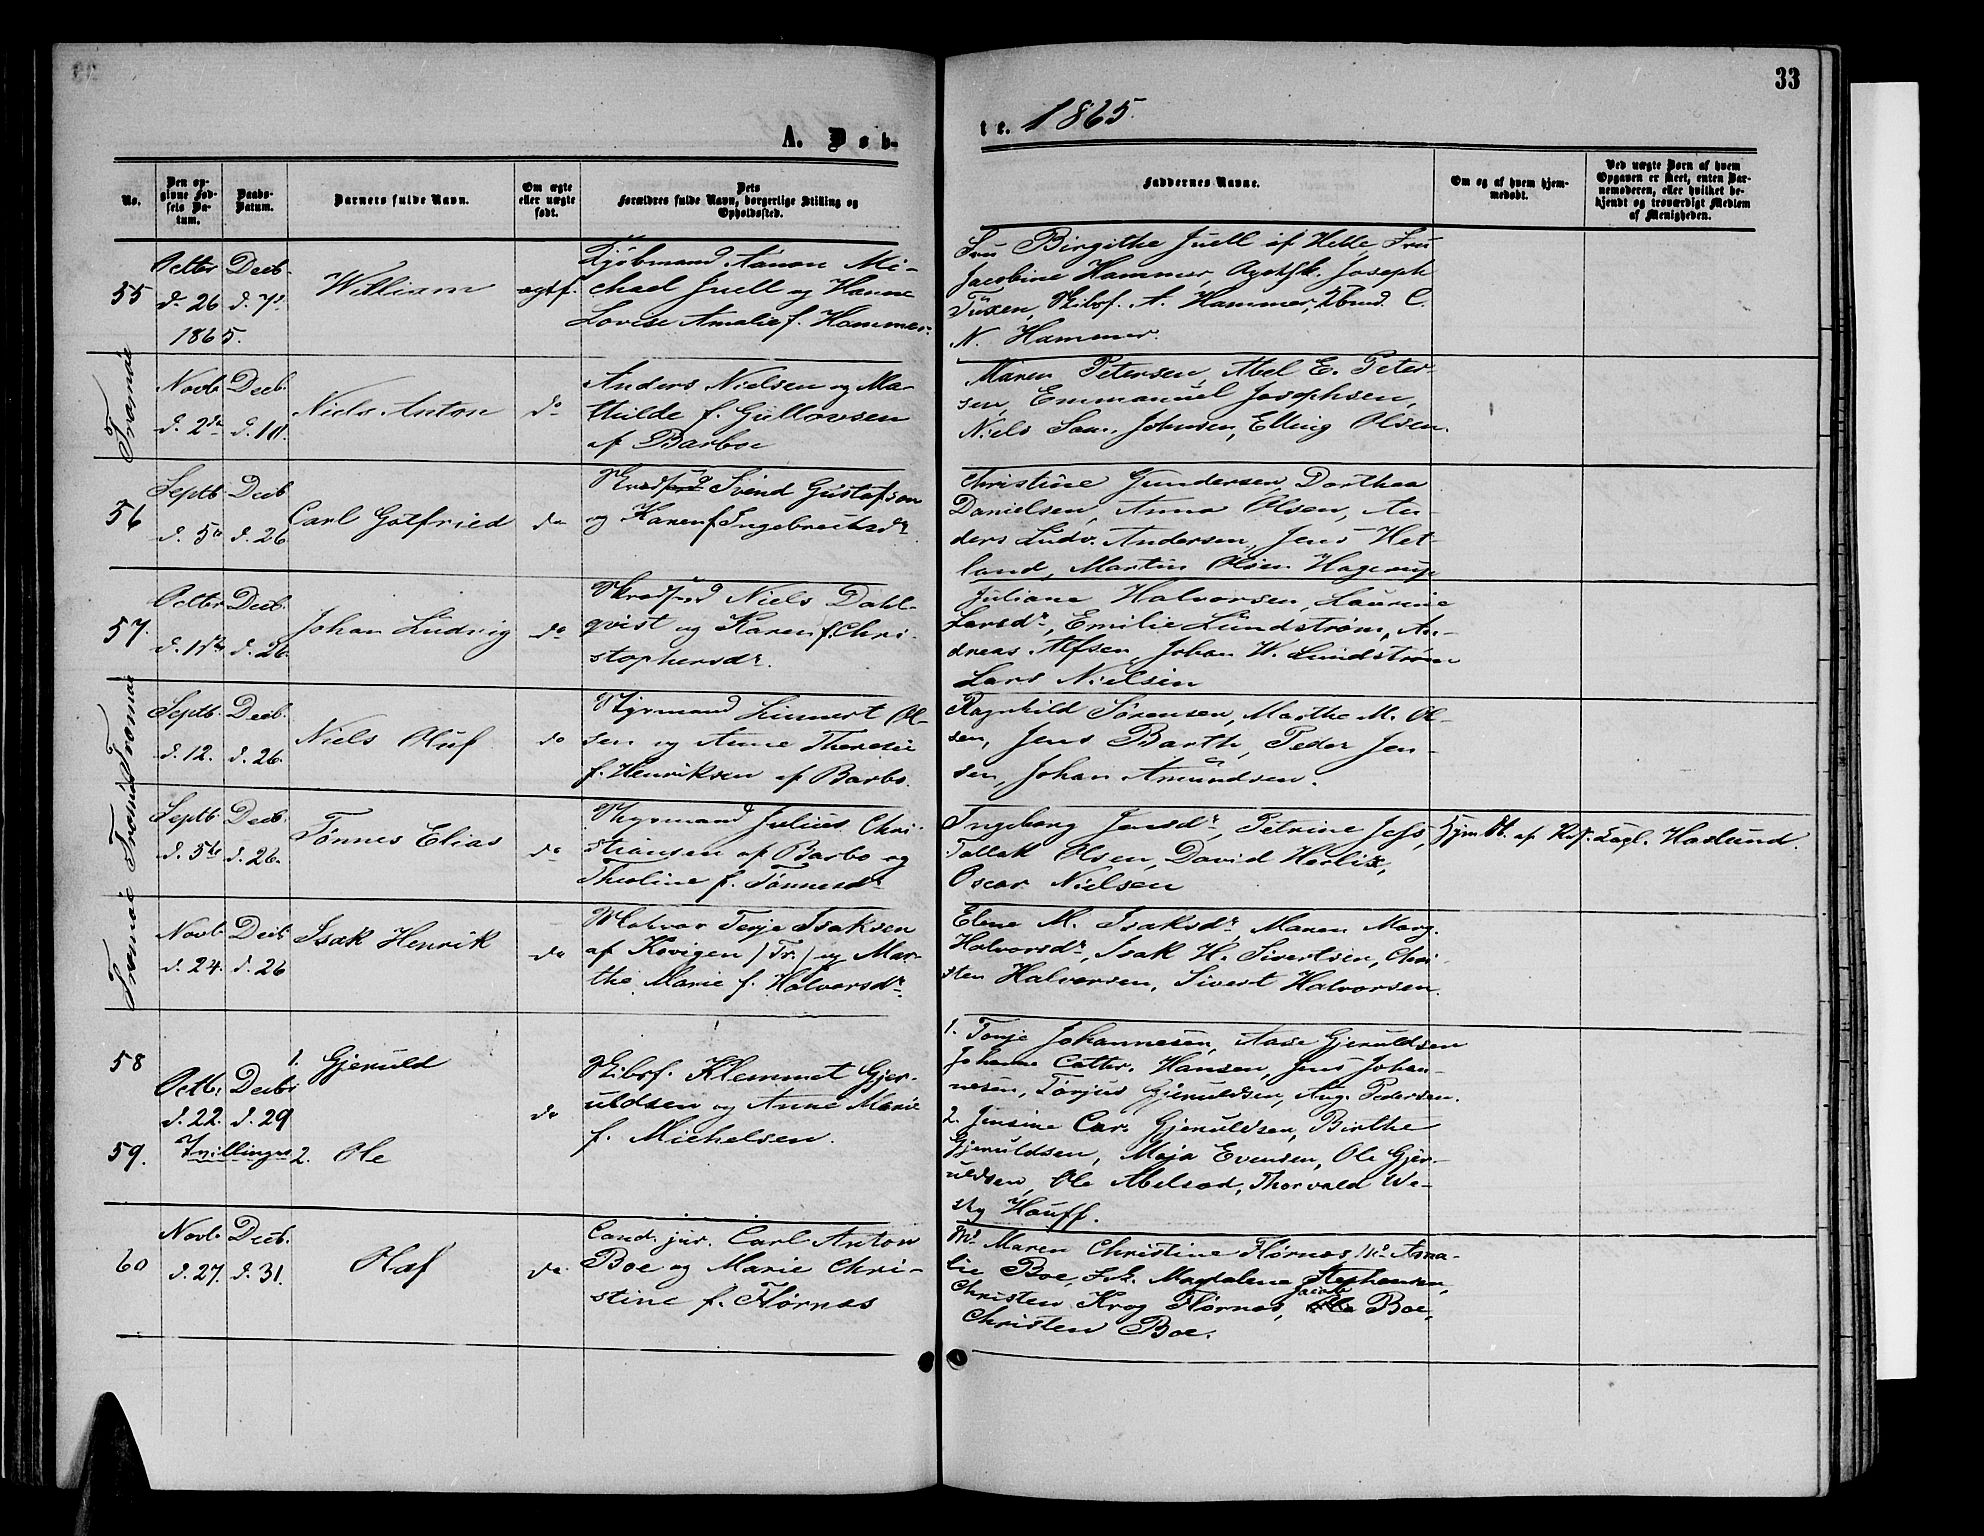 33
A. Døb-
te. 1865.
No.
Den op-
givne Fød-
sels Da-
tum.
Daabs-
Datum.
Barnets fulde Navn.
Om ægte
eller uægte
født.
Dets
Forældres fulde Navn, borgerlige Stilling og
Opholdssted.
Faddernes Navne.
Om og af hvem hjem-
medøbt.
Ved uægte Børn af hvem
Opgaven er skeet, enten Bar-
nemoderen, eller hvilket be-
kjendt og troværdigt Medlem
af Menigheden.
55
Octbr
d. 26
1865.
Decb.
d. 7de
William
ægtef.
Kjøbmand Aanon Mi-
chael Juell og Hanne
Lovise Amalie f. Hammer.
Fru Birgithe Juell af Helle, Fru
Jacobine Hammer, Joseph
Tuxen, Skibsf. A. Hammer, C.
N. Hammer.
Tromøe
Novb.
d. 2de
Decb.
d. 10.
Niels Anton
do
Anders Nielsen og Ma-
thilde f. Gullovsen
af Barboe
Maren Petersen, Abel E. Peter-
sen, Emmanuel Josephsen,
Niels Sam. Johnsen, Elling Olsen.
56
Septb.
d. 5te
Decb
d. 26
Carl Gotfried
do
Svend Gustafson
og Karen f. Ingebretsdr.
Christine Gundersen, Dorthea
Danielsen, Anna Olsen, An-
ders Ludv. Andersen, Jens Het-
land, Martin Olsen Hagerup
57.
Octbr
d. 17de
Decb.
d. 26.
Johan Ludvig
do
Niels Dahl-
qvist og Karen f. Chri-
stophersdr.
Juliane Halvorsen, Laurine
Larsdr, Emilie Lundstrøm, An-
dreas Alfsen, Johan W. Lundstrøm
Lars Nielsen
Tromøe
Septb.
d. 12.
Decb.
d. 26.
Niels Oluf
do
Styrmand Linnert Ol-
sen og Anne Theresie
f. Henriksen af Barbo.
Ragnhild Sørensen, Marthe M. Ol-
sen, Jens Barth, Peder Jen-
sen, Johan Amundsen.
Tromøe
Septb.
d. 5te
Decb.
d. 26.
Tønnes Elias
do
Styrmand Julius Chri-
stiansen af Barbo og
Theoline f. Tønnesdr
Ingeborg Jensdr, Petrine Jess,
Tallak Olsen, David Herlis,
Oscar Nielsen
Hjm.db. af Haslund.
Tromøe
Novb.
d. 24.
Decb
d. 26
Isak Henrik
do
Matros Terje Isaksen
af Kovigen (Tr.) og Mar-
the Marie f. Halvorsdr.
Elene M. Isaksdr, Maren Marg.
Halvorsdr, Isak H. Sivertsen, Chri-
sten Halvorsen, Sivert Halvorsen.
58
1. Gjeruld
Octb.
d. 22.
Decbr
d. 29
do
Skibsf. Klemmet Gjer-
uldsen og Anne Marie
f. Michelsen.
59.
Tvillinger 2. Ole
1. Tonje Johannesen, Aase Gjeruldsen
Johanne Cathr. Hansen, Jens Johan-
nesen, Tørjus Gjeruldsen, Aug. Pedersen.
2. Jensine Car. Gjeruldsen, Birthe
Gjeruldsen, Maja Evensen, Ole Gjer-
uldsen, Ole Abelsød, Thorvald We-
sky Hauff.
60
Novb.
d. 27.
Decb.
d. 31.
Olaf
do
Cand. jur. Carl Anton
Boe og Marie Chri-
stine f. Flørnæs
Md Maren Christine Flørnæs, Md Ama-
lie Boe, Frk. Magdalene Stephansen,
Christen Krog Flørnæs, Jacob Boe,
Christen Boe.